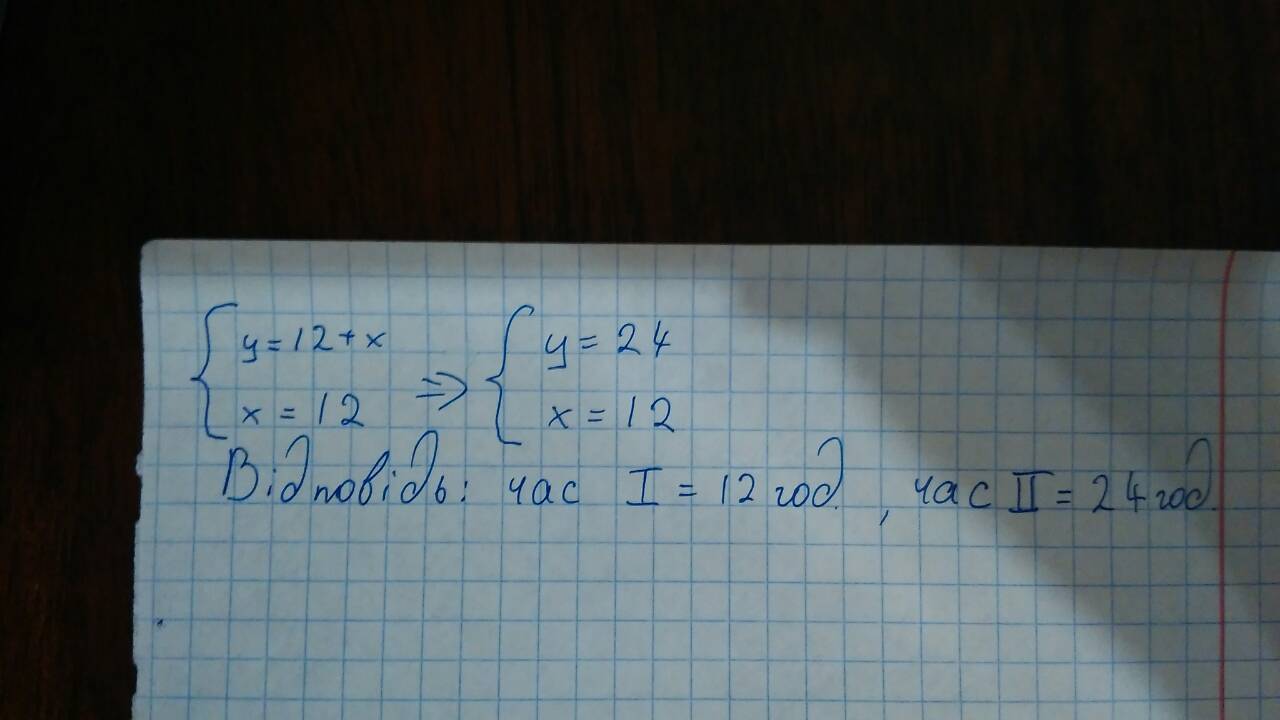 { y = 12 + x => { y = 24
{ x = 12 => { x = 12
Відповідь: час I = 12 год. , час II = 24 год.